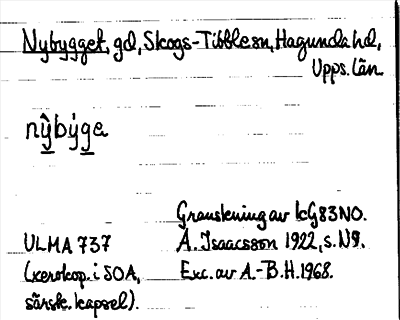 Nybygget, gd, Skogs-Tibble sn, Hagunda hd,
Upps. län.
nŷbýge
Granskning av kG83NO.
ULMA 737 A. Isaacsson 1922, s. N9.
(xerokop. i SOA, Exc. av A.-B.H. 1968.
särsk. kapsel).